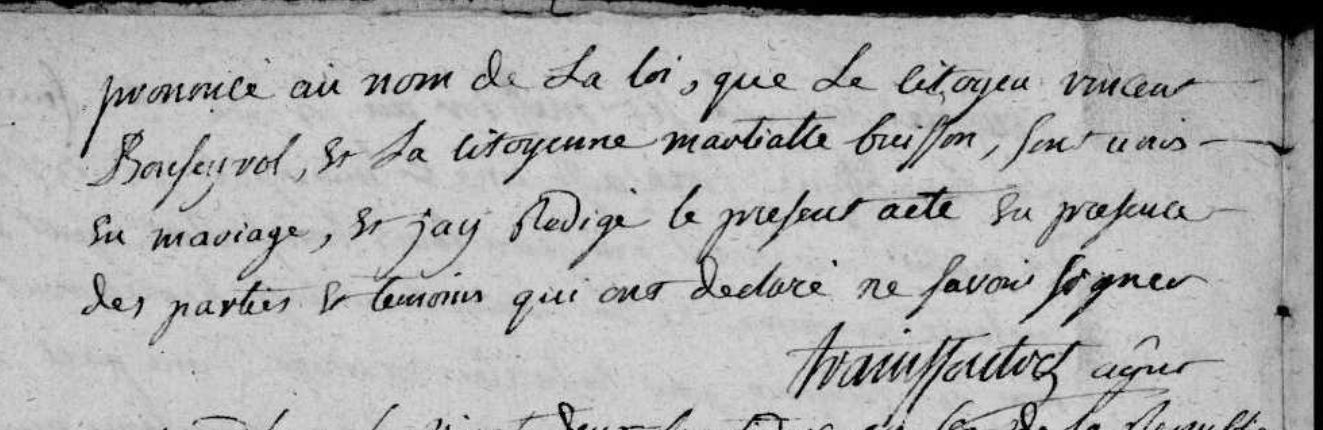 prononcé au nom de La loi, que Le citoyen vincent
Bonseyrol, et La citoyenne martialle buisson, sont unis
en mariage, et jay Redigé le present acte en presence
des parties et temoins qui ont declaré ne savoir signer
de la Republi